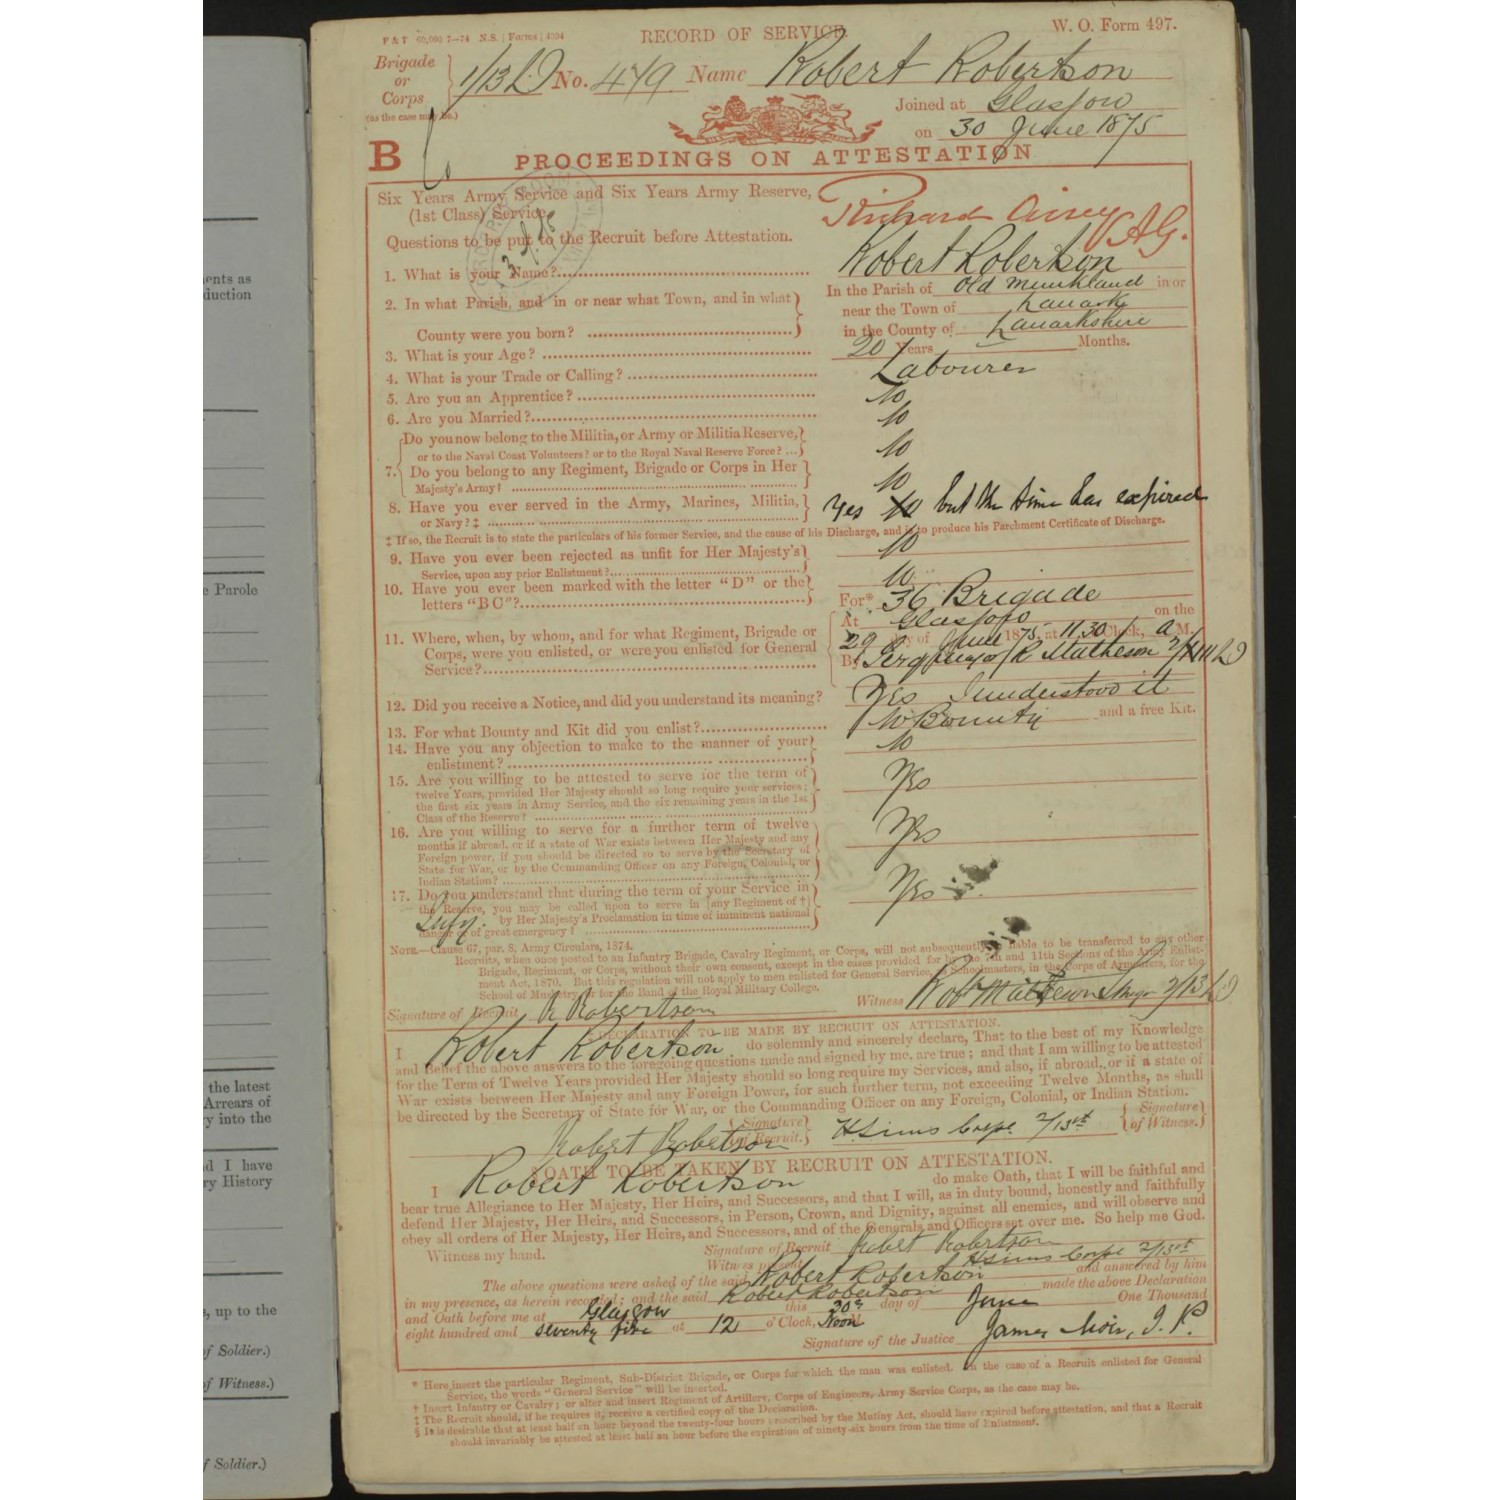 F & T 60,000 7—74 N.S. | Forms | 4304
RECORD OF SERVICE
W. O. Form 497.
Brigade
or
Corps
(as the case may be.)
1/13 LD No. 479 Name Robert Robertson
Joined at Glasgow
on 30 June 1875
B
PROCEEDINGS ON ATTESTATION
Six Years Army Service and Six Years Army Reserve,
(1st Class) Service.
Richard Airey AG.
Questions to be put to the Recruit before Attestation.
1. What is your Name? Robert Robertson
2. In what Parish, and in or near what Town, and in what
County were you born?
In the Parish of Old Munkland in or
near the Town of Lanark
in the County of Lanarkshire
3. What is your Age? 20 Years Months.
4. What is your Trade or Calling? Labourer
5. Are you an Apprentice? No
6. Are you Married? No
7. Do you now belong to the Militia, or Army or Militia Reserve,
or to the Naval Coast Volunteers? or to the Royal Naval Reserve Force? ... No
Do you belong to any Regiment, Brigade or Corps in Her
Majesty's Army? No
8. Have you ever served in the Army, Marines, Militia,
or Navy? ‡ Yes No but the time has expired
‡ If so, the Recruit is to state the particulars of his former Service, and the cause of his Discharge, and is to produce his Parchment Certificate of Discharge.
9. Have you ever been rejected as unfit for Her Majesty's
Service, upon any prior Enlistment? No
10. Have you ever been marked with the letter "D" or the
letters "BC"? No
11. Where, when, by whom, and for what Regiment, Brigade or
Corps, were you enlisted, or were you enlisted for General
Service?
For* 36 Brigade
At Glasgow on the
29 day of June 1875 at 11.30 Clock, A M.
By Serg Major R Matheson
12. Did you receive a Notice, and did you understand its meaning? Yes I understood it
13. For what Bounty and Kit did you enlist? No Bounty and a free Kit.
14. Have you any objection to make to the manner of your
enlistment? No
15. Are you willing to be attested to serve for the term of
twelve Years, provided Her Majesty should so long require your services;
the first six years in Army Service, and the six remaining years in the 1st
Class of the Reserve? Yes
16. Are you willing to serve for a further term of twelve
months if abroad, or if a state of War exists between Her Majesty and any
Foreign power, if you should be directed so to serve by the Secretary of
State for War, or by the Commanding Officer on any Foreign, Colonial, or
Indian Station? Yes
17. Do you understand that during the term of your Service in
the Reserve, you may be called upon to serve in [any Regiment of †]
by Her Majesty's Proclamation in time of imminent national
danger or of great emergency? Yes
NOTE.—Clause 67, par. 8, Army Circulars, 1874.
Recruits, when once posted to an Infantry Brigade, Cavalry Regiment, or Corps, will not subsequently be liable to be transferred to any other
Brigade, Regiment, or Corps, without their own consent, except in the cases provided for by the 7th and 11th Sections of the Army Enlist-
ment Act, 1870. But this regulation will not apply to men enlisted for General Service, Schoolmasters, in the Corps of Armourers, for the
School of Musketry or for the Band of the Royal Military College.
Signature of Recruit R Robertson Witness Robt Matheson 2/13 LD
DECLARATION TO BE MADE BY RECRUIT ON ATTESTATION.
I Robert Robertson do solemnly and sincerely declare, That to the best of my Knowledge
and Belief the above answers to the foregoing questions made and signed by me, are true; and that I am willing to be attested
for the Term of Twelve Years provided Her Majesty should so long require my Services, and also, if abroad, or if a state of
War exists between Her Majesty and any Foreign Power, for such further term, not exceeding Twelve Months, as shall
be directed by the Secretary of State for War, or the Commanding Officer on any Foreign, Colonial, or Indian Station.
Robert Robertson {Signature of Recruit.} H Sims Corpl 2/13th {Signature of Witness.}
OATH TO BE TAKEN BY RECRUIT ON ATTESTATION.
I Robert Robertson do make Oath, that I will be faithful and
bear true Allegiance to Her Majesty, Her Heirs, and Successors, and that I will, as in duty bound, honestly and faithfully
defend Her Majesty, Her Heirs, and Successors, in Person, Crown, and Dignity, against all enemies, and will observe and
obey all orders of Her Majesty, Her Heirs, and Successors, and of the Generals and Officers set over me. So help me God.
Witness my hand.
Signature of Recruit Robert Robertson
Witness present H Sims Corpl 2/13th
The above questions were asked of the said Robert Robertson and answered by him
in my presence, as herein recorded; and the said Robert Robertson made the above Declaration
and Oath before me at Glasgow this 30th day of June One Thousand
eight hundred and seventy five at 12 o'Clock, Noon
Signature of the Justice James Moir, J. P.
* Here insert the particular Regiment, Sub-District Brigade, or Corps for which the man was enlisted. In the case of a Recruit enlisted for General
Service, the words "General Service" will be inserted.
† Insert Infantry or Cavalry; or alter and insert Regiment of Artillery, Corps of Engineers, Army Service Corps, as the case may be.
‡ The Recruit should, if he requires it, receive a certified copy of the Declaration.
§ It is desirable that at least half an hour beyond the twenty-four hours prescribed by the Mutiny Act, should have expired before attestation, and that a Recruit
should invariably be attested at least half an hour before the expiration of ninety-six hours from the time of Enlistment.
ents as
duction
e Parole
the latest
Arrears of
y into the
d I have
ry History
s, up to the
of Soldier.)
of Witness.)
f Soldier.)